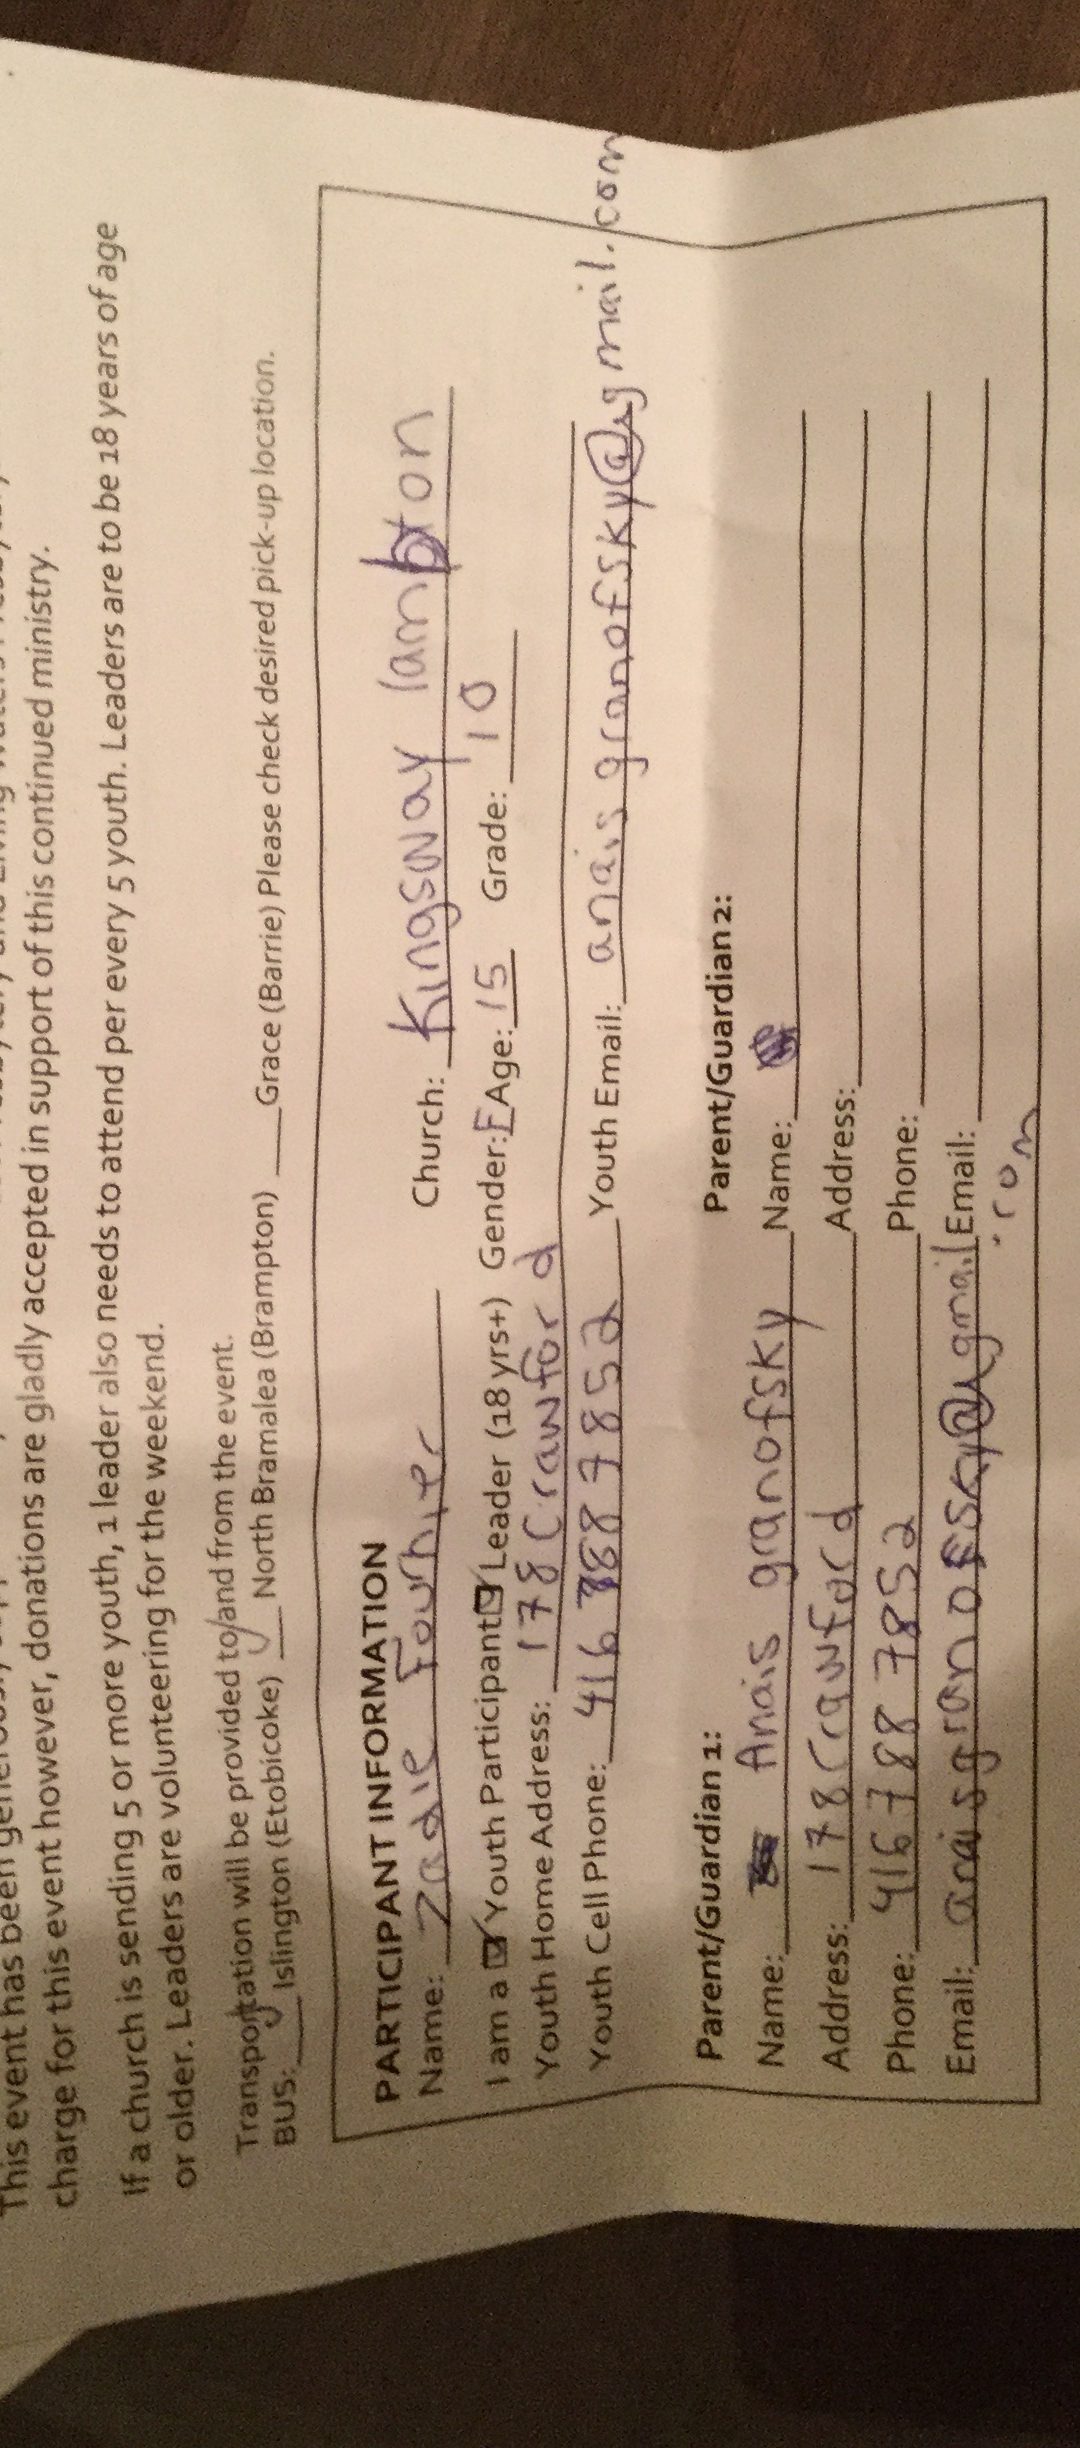 This event has been generously
charge for this event however, donations are gladly accepted in support of this continued ministry.
If a church is sending 5 or more youth, 1 leader also needs to attend per every 5 youth. Leaders are to be 18 years of age
or older. Leaders are volunteering for the weekend.
Transportation will be provided to/and from the event.
BUS: ___Islington (Etobicoke) ___ North Bramalea (Brampton) ___Grace (Barrie) Please check desired pick-up location.
PARTICIPANT INFORMATION
Name: Zadie Fournier Church: Kingsway lambton
I am a ☑ Youth Participant ☑ Leader (18 yrs+) Gender: F Age: 15 Grade: 10
Youth Home Address: 178 Crawford
Youth Cell Phone: 416 788 7852 Youth Email: anais granofsky@gmail.com
Parent/Guardian 1: Parent/Guardian 2:
Name: Anais granofsky Name:
Address: 178 Crawford Address:
Phone: 416 788 7852 Phone:
Email: anaisgranofsky@gmail.com Email: